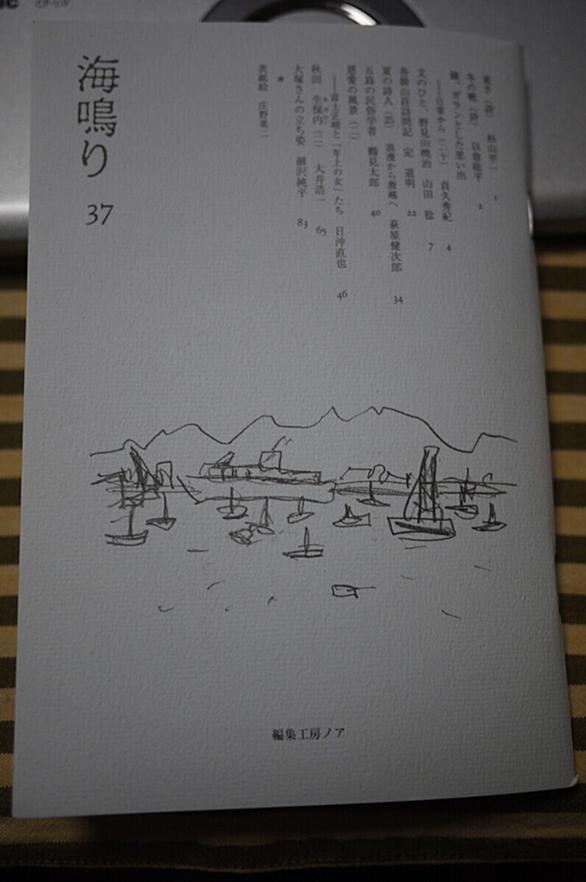 海鳴り 37
重さ(詩) 杉山平一 1
冬の靴(詩) 以倉紘平 2
ガランとした思い出
(二十) 貞久秀紀 4
文のひと、野見山暁治 山田 稔 7
山荘訪問記 定 道明 22
夏の詩人 浪漫から激越へ 萩原健次郎 34
五島の民俗学者 鶴見太郎 40
恩愛の風景(二)
――富士正晴と「年上の女」たち 日沖直也 46
秋田 生保内(二) 大井浩一 65
大塚さんの立ち姿 涸沢純平 83
*
表紙絵 庄野英二
編集工房ノア